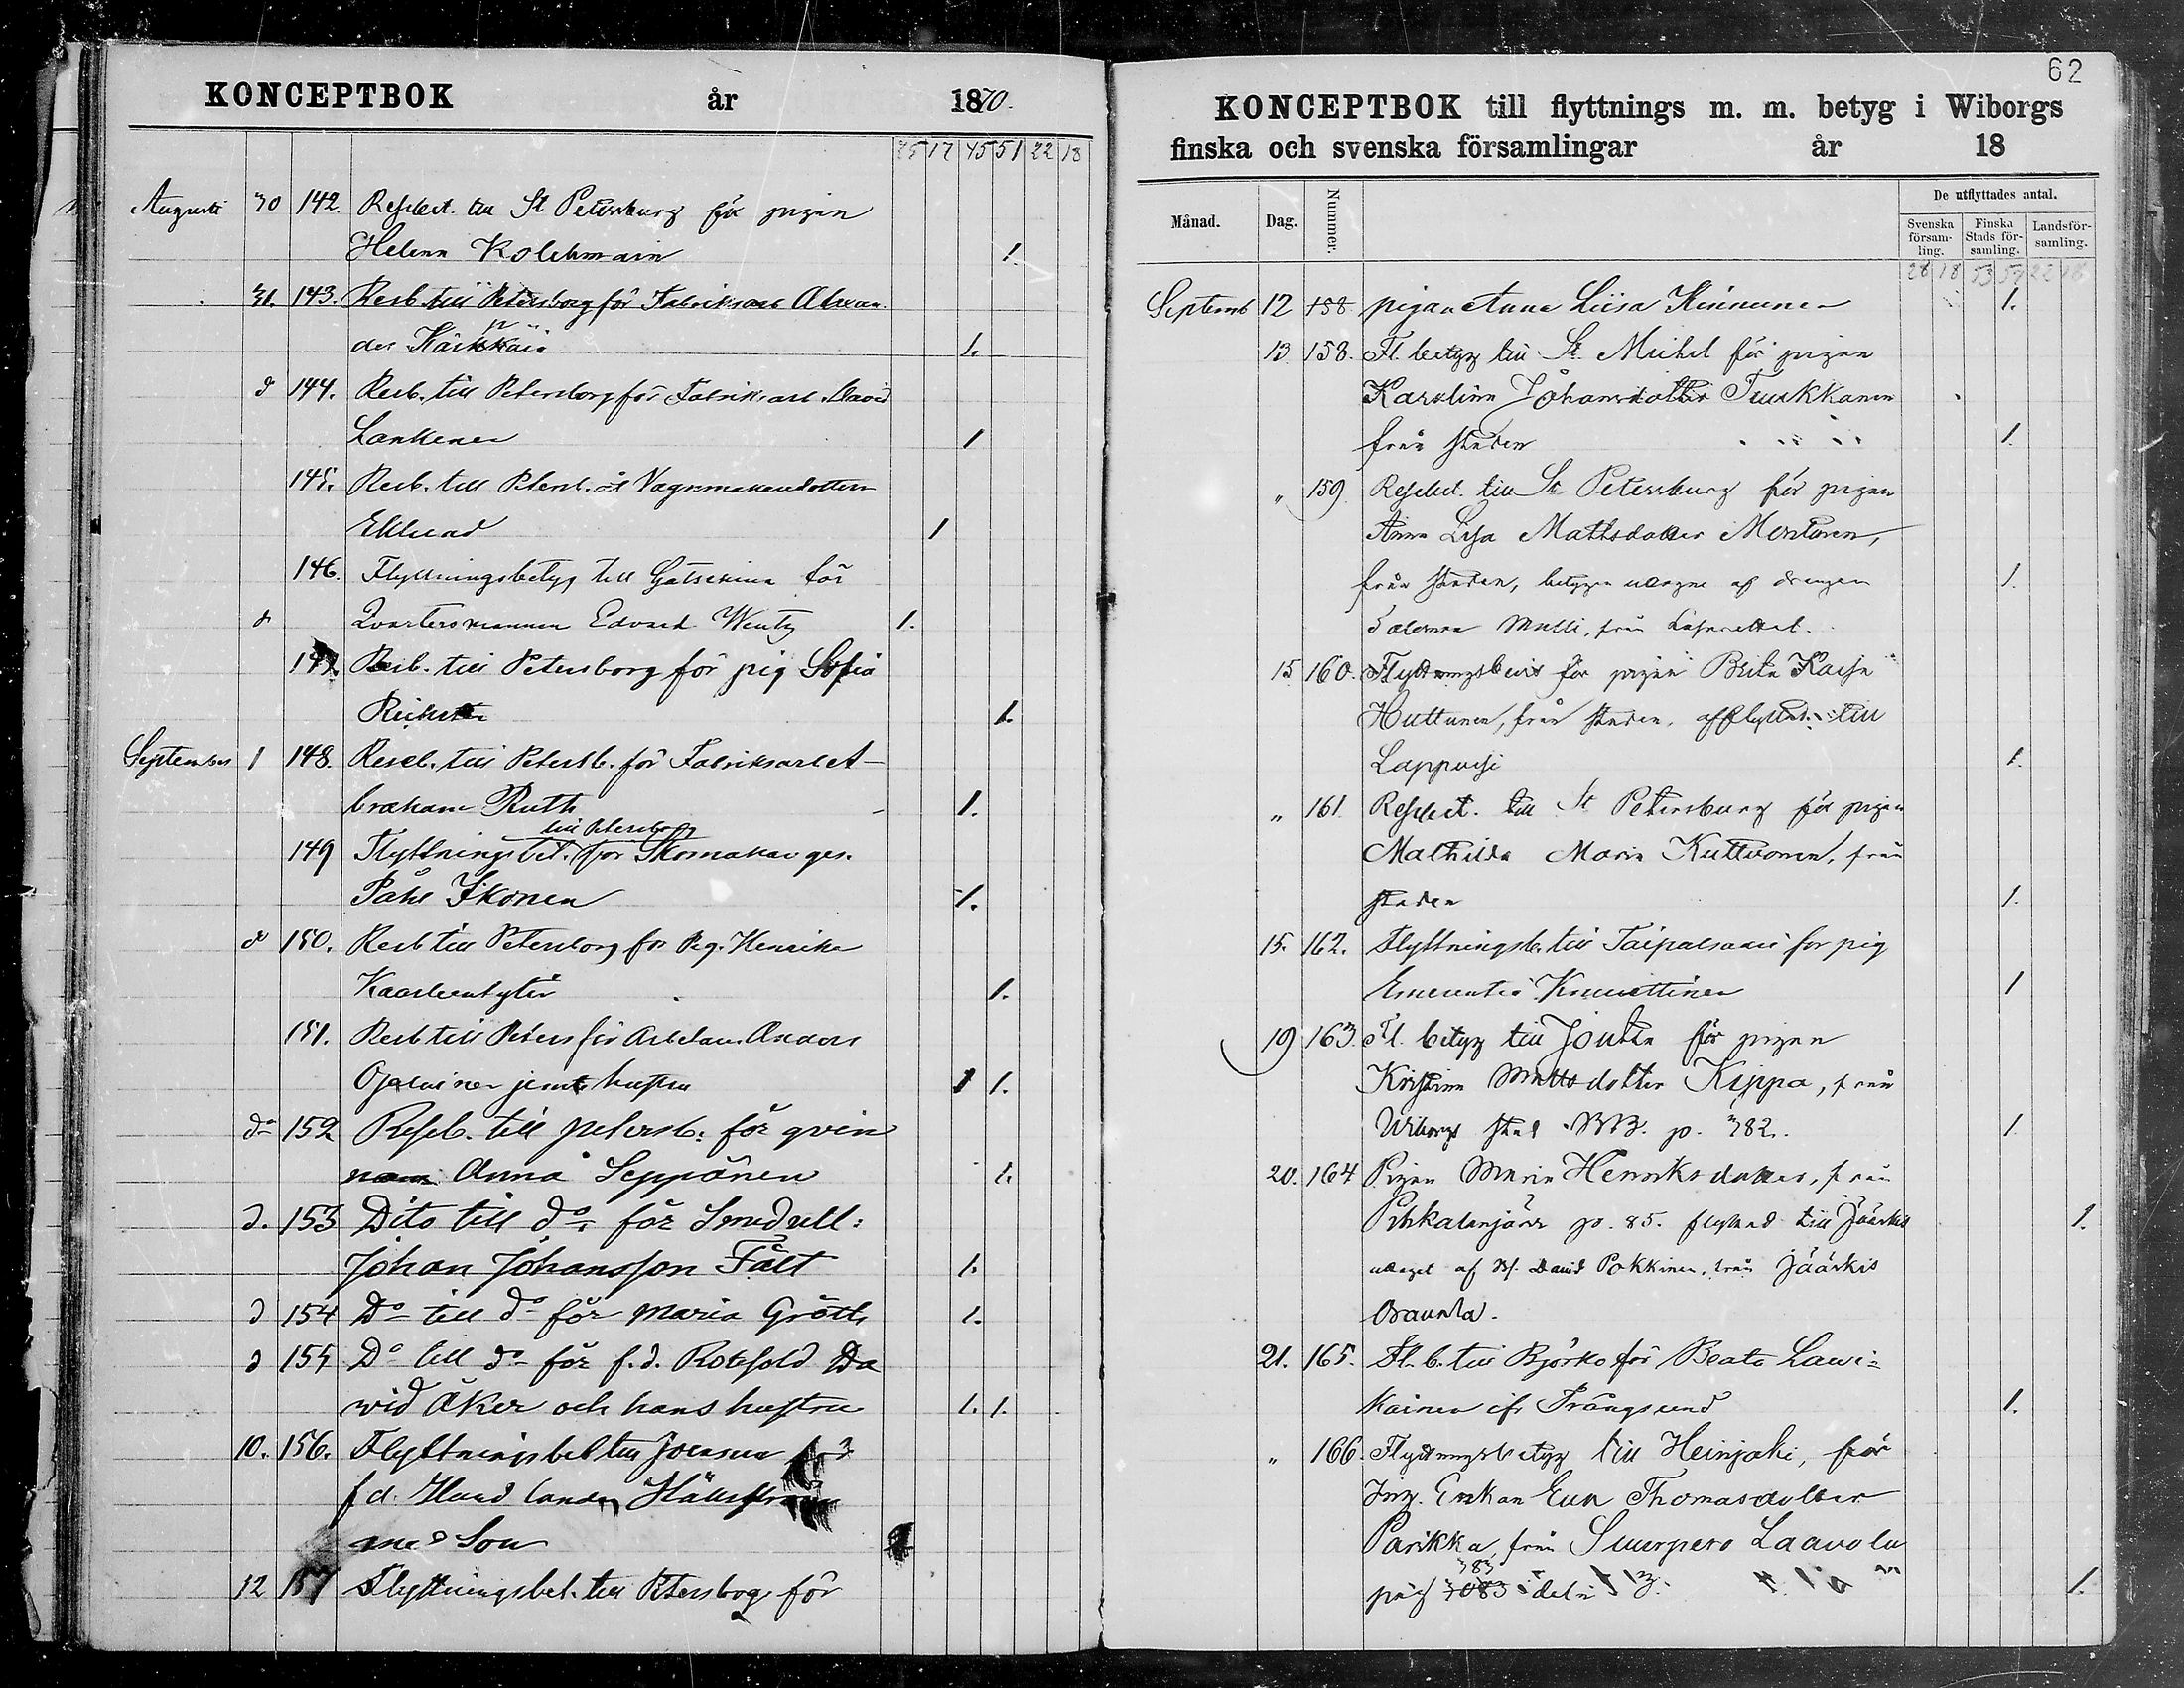 KONCEPTBOK år 1870.
25 17 45 51 22 18
Augusti 30 142. Resebet. till St Petersburg för pigan
Helena Kolehmain 1.
31. 143. Resb. till Petersborg för Fabriksarb Alexan
der Kärkkäin 1.
d 144. Resb. till Petersborg för Fabriksarb. David
Lankenen 1
145. Resb. till Petersb. åt Vagnmakaredottern
Eklund 1
146. Flyttningsbetyg till Gatschina för
d Quartersmannen Edvard Wentz 1.
147. Resb. till Petersborg för pig Sofia
1.
September 1 148. Reseb. till Petersb. för Fabriksarb A-
braham Ruth 1.
till Petersborg
149 Flyttningsbet. för Skomakar ges.
Påhl Ikonen 1.
d 150. Resb till Petersborg för Pig. Henrika
1.
151. Resb till Peters för Arbetaren Anders
jemte hustru 1 1.
do 152 Reseb. till petersb: för qvin
nan Anna Seppönen 1.
d. 153 Dito till do för Smedsell:
Johan Johansson Fält 1.
d 154 Do till do för Maria Gröth 1.
d 155 Do till do för f.d. Rotesold Da
vid Åker och hans hustru 1. 1.
10. 156. Flyttningsbet till Joensuu för
f d.
Son
12 157 Flyttningsbet. till Petersborg för
62
KONCEPTBOK till flyttnings m. m. betyg i Wiborgs
finska och svenska församlingar år 18
Månad. Dag. Nummer. De utflyttades antal.
Svenska församling. Finska Stads församling. Landsförsamling.
28 18 53 57 22 18
Septemb 12 158 pigan Anna Liisa Kinnunen 1.
13 158. Fl. betyg till St. Michel för pigan
Karolina Johansdotter Tuukkanen
från staden 1.
" 159 Resebet. till St Petersburg för pigan
Anna Lisa Mattsdotter Montonen,
från staden, betygen uttagne af drengen
Salomon Matti, från Lasarettet. 1.
15 160. Flyttningsbevis för pigan Brita Kaisa
Huttunen, från staden, afflyttad till
Lappvesi 1.
" 161 Resebet. till St Petersburg för pigan
Mathilda Maria Kuttvonen, från
staden 1.
15. 162. Flyttningsb. till Taipalsaari för pig
Emerentia Knuuttinen 1
19 163. Fl. betyg till Joutse för pigan
Kristina Mattsdotter Kippa, från
Wiborgs stad KB. p. 382. 1
20. 164 Pigan Maria Henriksdotter, från
Pihkalanjärvi p. 85. flyttad till Jääskis 1.
uttaget af Bf. David Pokkinen, från Jääskis
21. 165. Fl. b. till Björkö för Beata Lawi-
kainen ifr Trångsund 1.
" 166. Flyttningsbetyg till Heinjoki, för
Inh. Enkan Eva Thomasdotter
Parikka, från Suurpero Laavola
383
pag 7083 1.